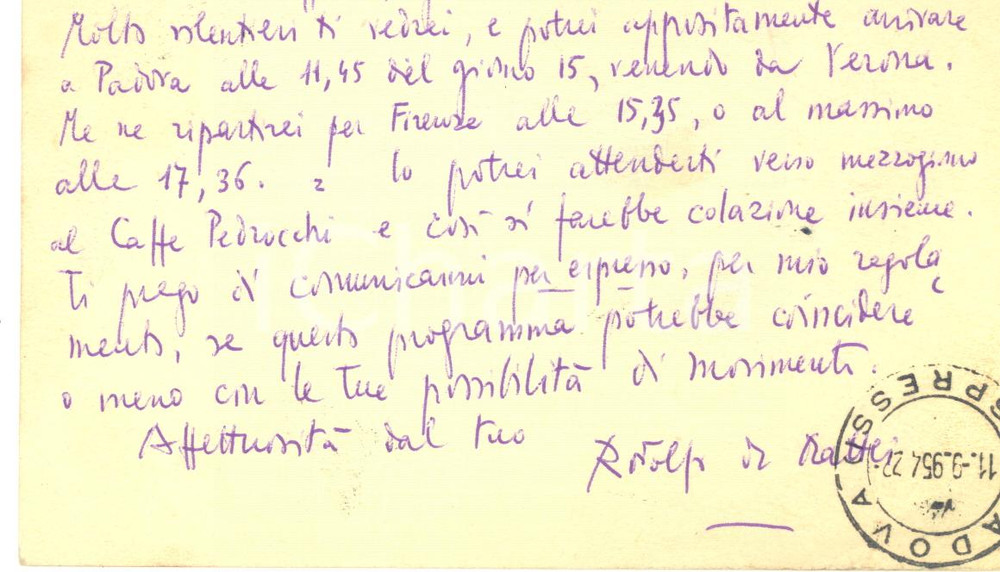 Molto volentieri ti vedrei, e potrei appositamente arrivare
a Padova alle 11,45 del giorno 15, venendo da Verona.
Me ne ripartirei per Firenze alle 15,35, o al massimo
alle 17,36. Io potrei attenderti verso mezzogiorno
al Caffe Pedrocchi e così si farebbe colazione insieme.
Ti prego di comunicarmi per espresso, per mio regola
mento, se questo programma potrebbe coincidere
o meno con le tue possibilità di movimenti.
Affettuosità dal tuo
Rodolfo de Mattei
PADOVA ESPRESS
11.-9.954.22